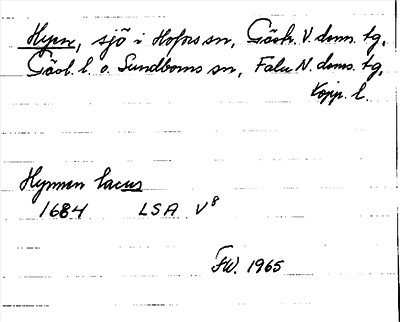 Hyen, sjö i Hofors sn, Gästr. V. doms. tg,
Gävl. l. o. Sundborns sn, Falu N. doms. tg,
Kopp. l.
Hynnen lacus
1684 LSA V⁸
FW. 1965